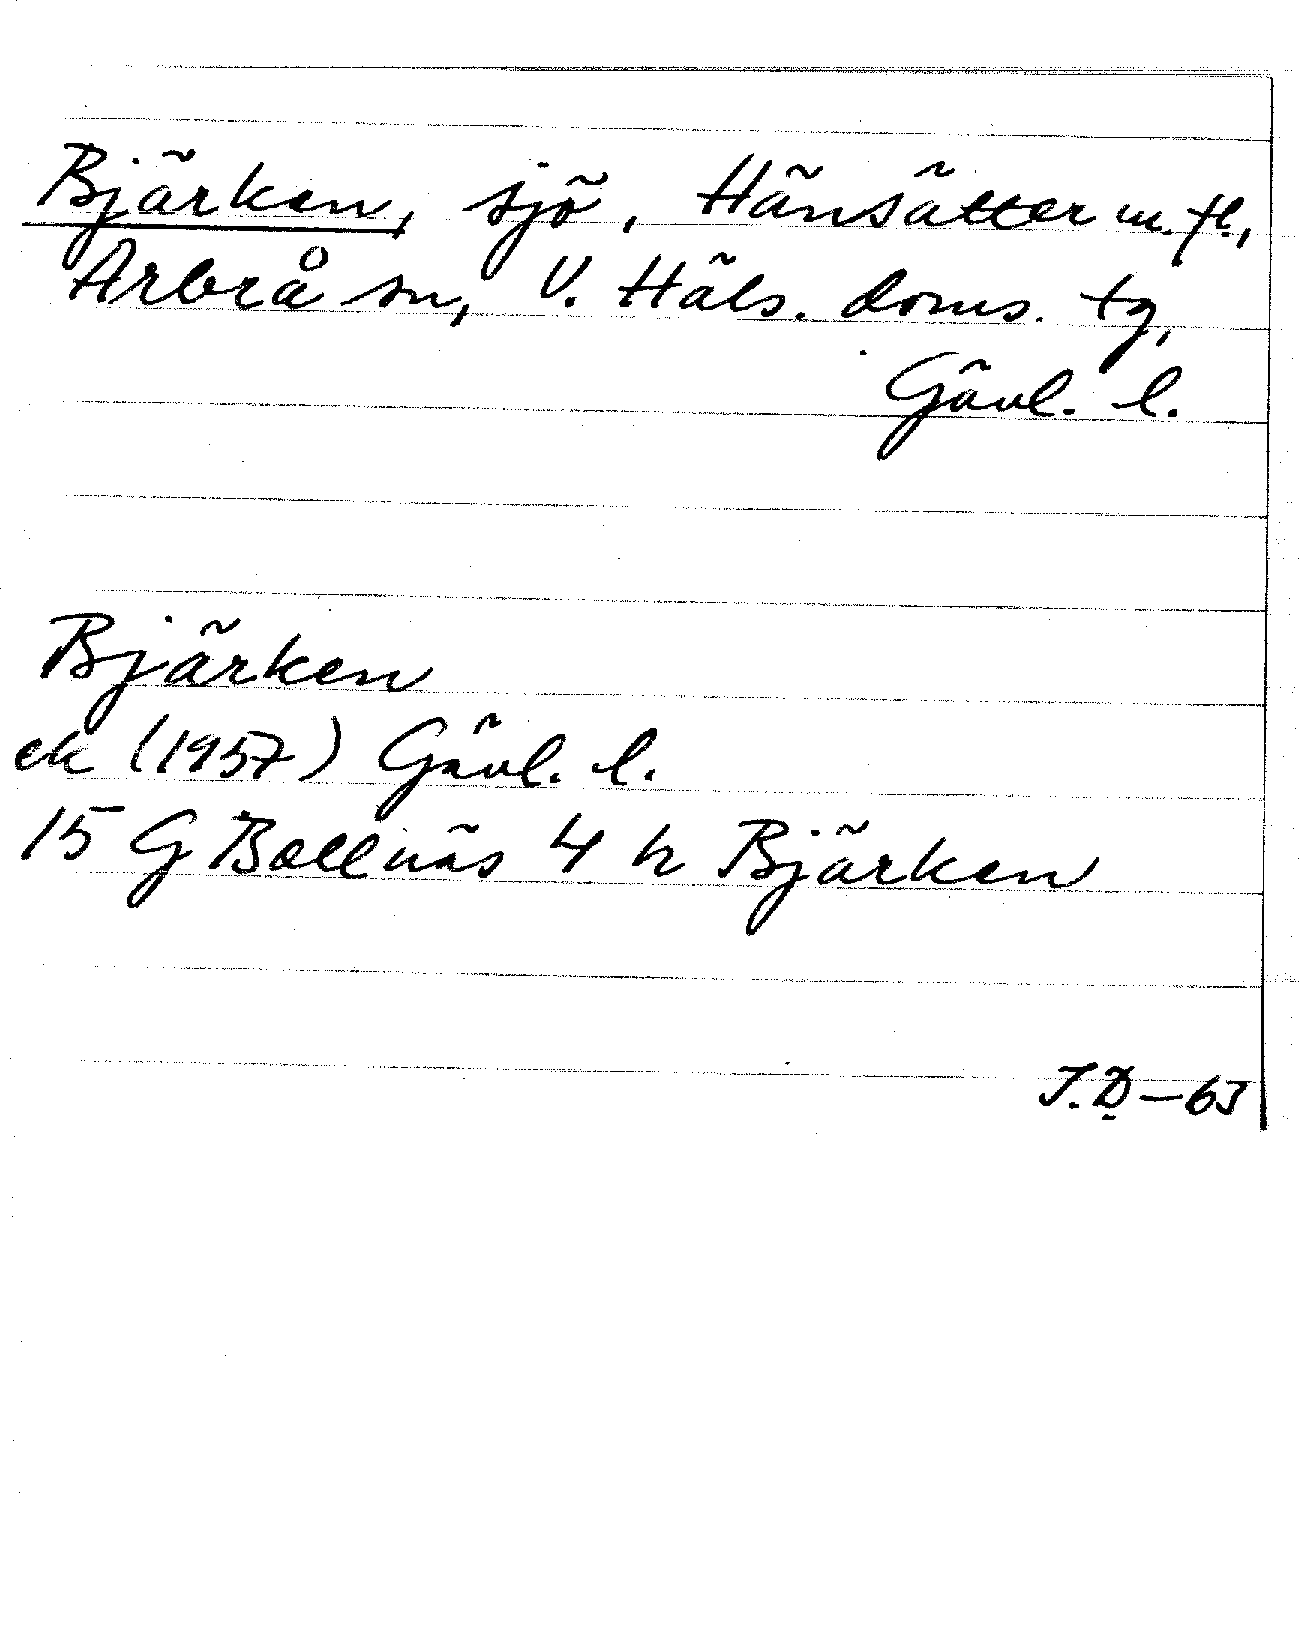 Bjärken, sjö, Hänsätter m. fl.,
Arbrå sn, V. Häls. doms. tg,
Gävl. l.
Bjärken
ek (1957) Gävl. l.
15 G Bollnäs 4 h Bjärken
J.D-63